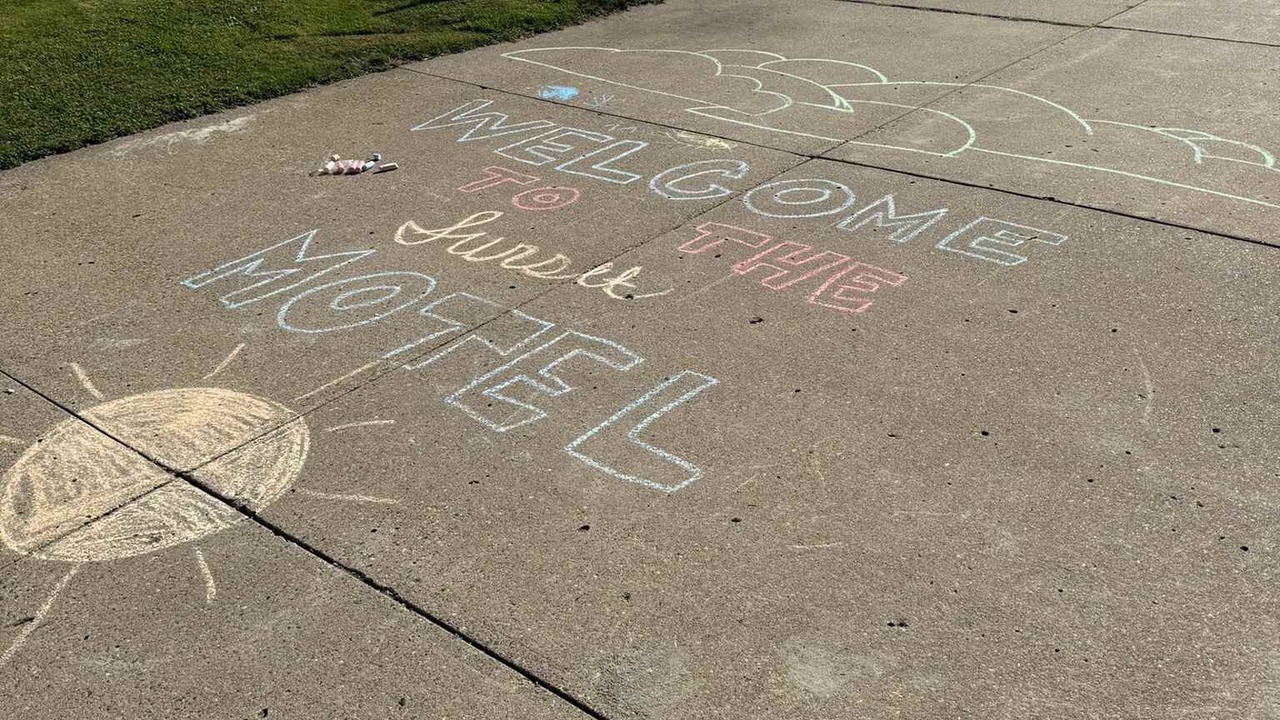 WELCOME
TO THE
Sunset
MOTEL